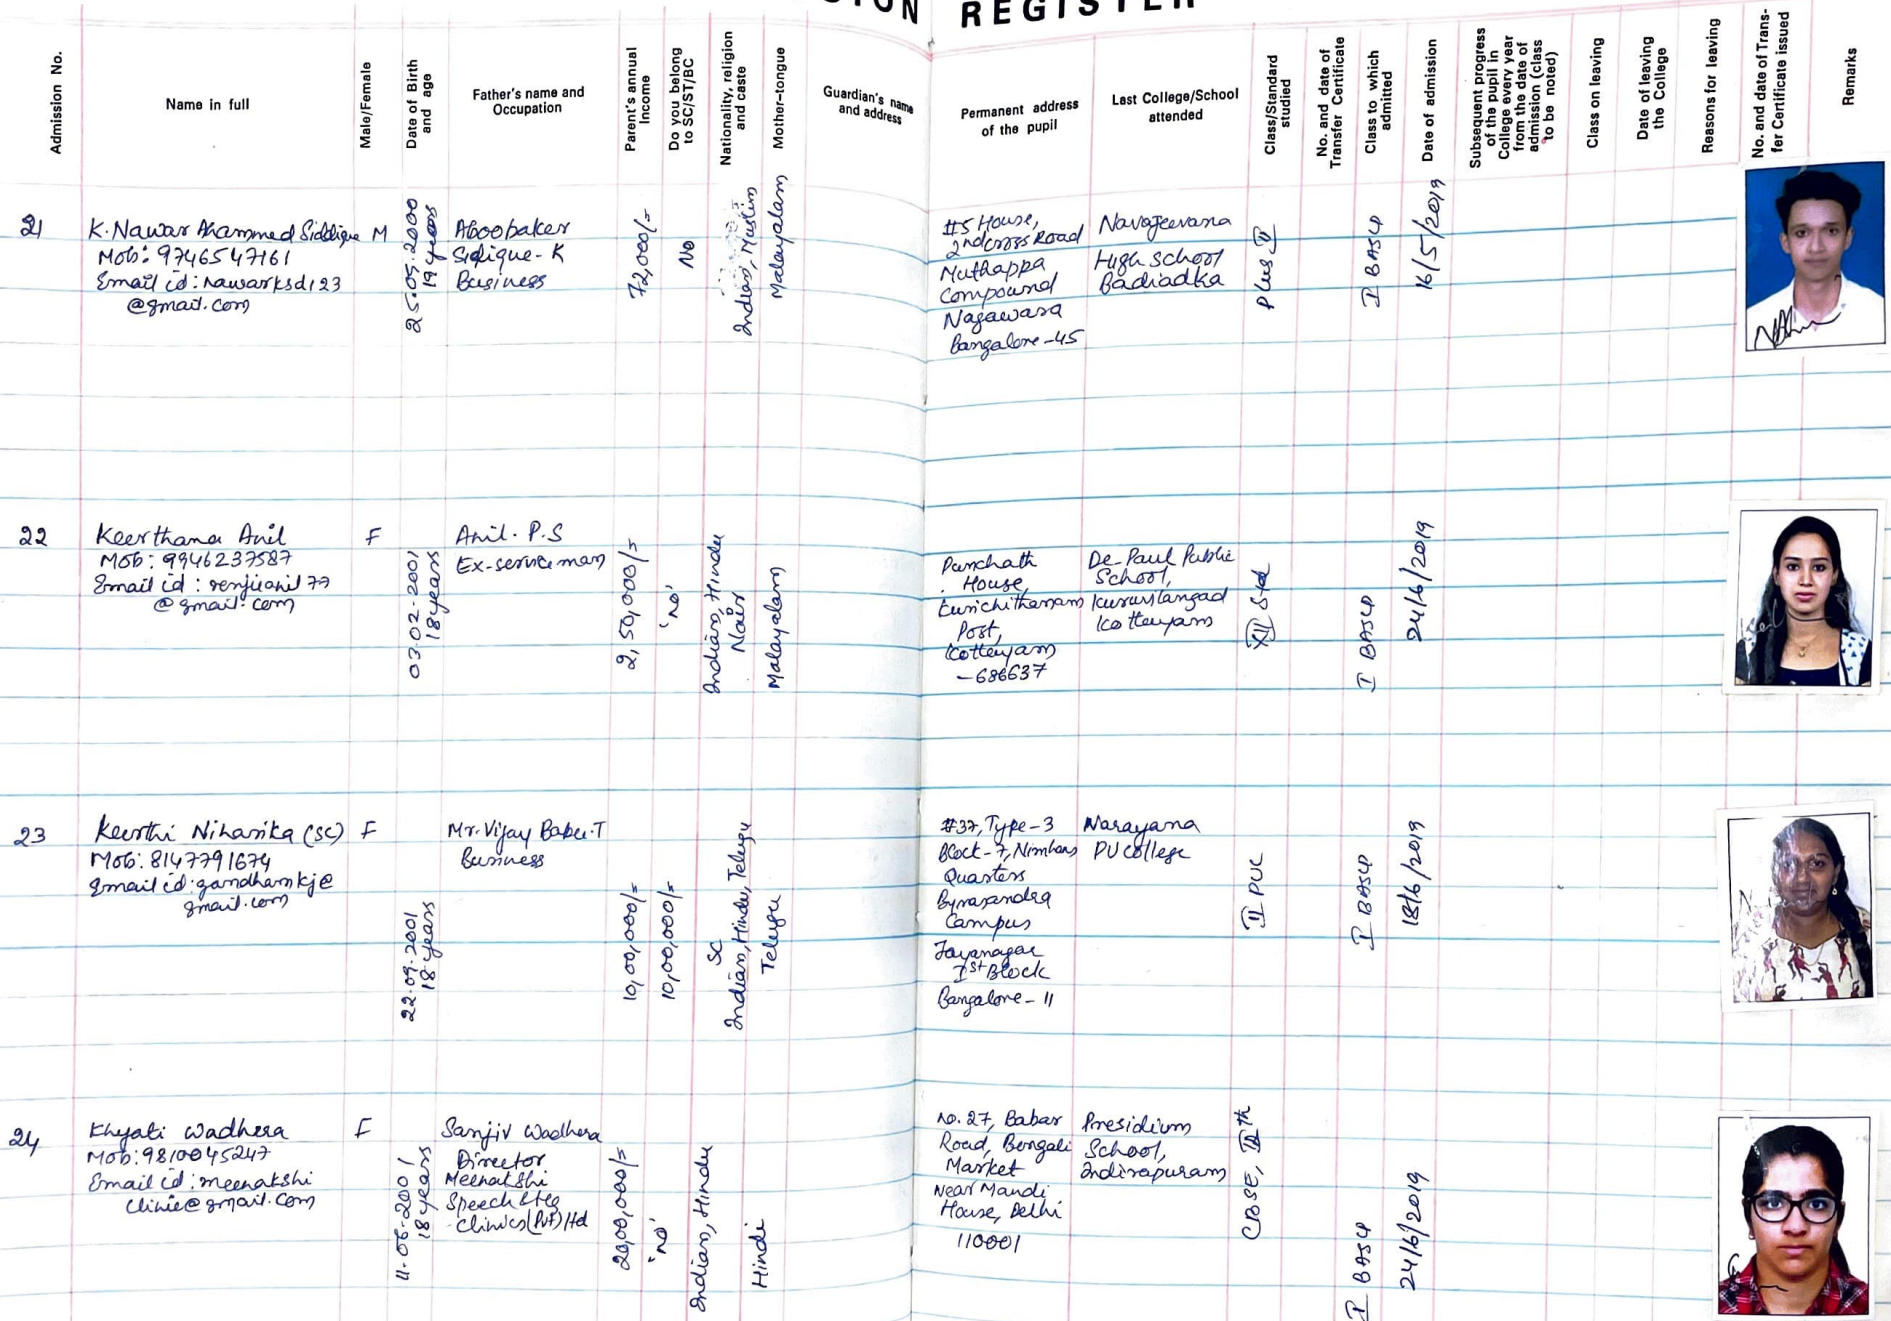 REGISTER
Admission No.
Name in full
Male/Female
Date of Birth
and age
Father's name and
Occupation
Parent's annual
Income
Do you belong
to SC/ST/BC
Nationality, religion
and caste
Mother-tongue
Guardian's name
and address
Permanent address
of the pupil
Last College/School
attended
Class/Standard
studied
No. and date of
Transfer Certificate
Class to which
admitted
Date of admission
Subsequent progress
of the pupil in
College every year
from the date of
admission (class
to be noted)
Class on leaving
Date of leaving
the College
Reasons for leaving
No. and date of Trans-
fer Certificate issued
Remarks
21
K. Nawar Ahammed Siddique
Mob: 9746547161
Email id: nawarksd123
@gmail.com
M
25.05.2000
19 years
Aboobaker
Sidique-K
Business
72,000/=
No
Indian, Muslim
Malayalam
#5 House,
2nd cross Road
Muthappa
Compound
Nagawara
Bangalore-45
Navajeevana
High school
Badiadka
Plus II
I BASLP
16/5/2019
22
Keerthana Anil
Mob: 9946237587
Email id: renjuanil77
@gmail.com
F
03.02.2001
18 years
Anil. P.S
Ex-service man
2,50,000/=
'no'
Indian, Hindu
Nair
Malayalam
Punchath
House,
Kurichithanam
Post,
Kottayam
-686637
De-Paul Public
School,
Kuravilangad
Kottayam
XII Std
I BASLP
24/6/2019
23
Keerthi Niharika (SC)
Mob: 8147791674
Email id: gandhamkj@
gmail.com
F
22.09.2001
18 years
Mr. Vijay Babu.T
Business
10,00,000/=
10,00,000/=
SC
Indian, Hindu, Telugu
Telugu
#37, Type-3
Block-7, Nimhans
Quarters
Byrasandra
Campus
Jayanagar
Ist Block
Bangalore-11
Narayana
PU College
II PUC
I BASLP
18/6/2019
24
Khyati Wadhera
Mob: 9810045247
Email id: meenakshi
clinic@gmail.com
F
11.06.2001
18 years
Sanjiv Wadhera
Director
Meenakshi
Speech & Hg
Clinics (Pvt) ltd
20,00,000/=
'no'
Indian, Hindu
Hindi
No. 27, Babar
Road, Bengali
Market
Near Mandi
House, Delhi
110001
Presidium
School,
Indirapuram
CBSE,
I BASLP
24/6/2019